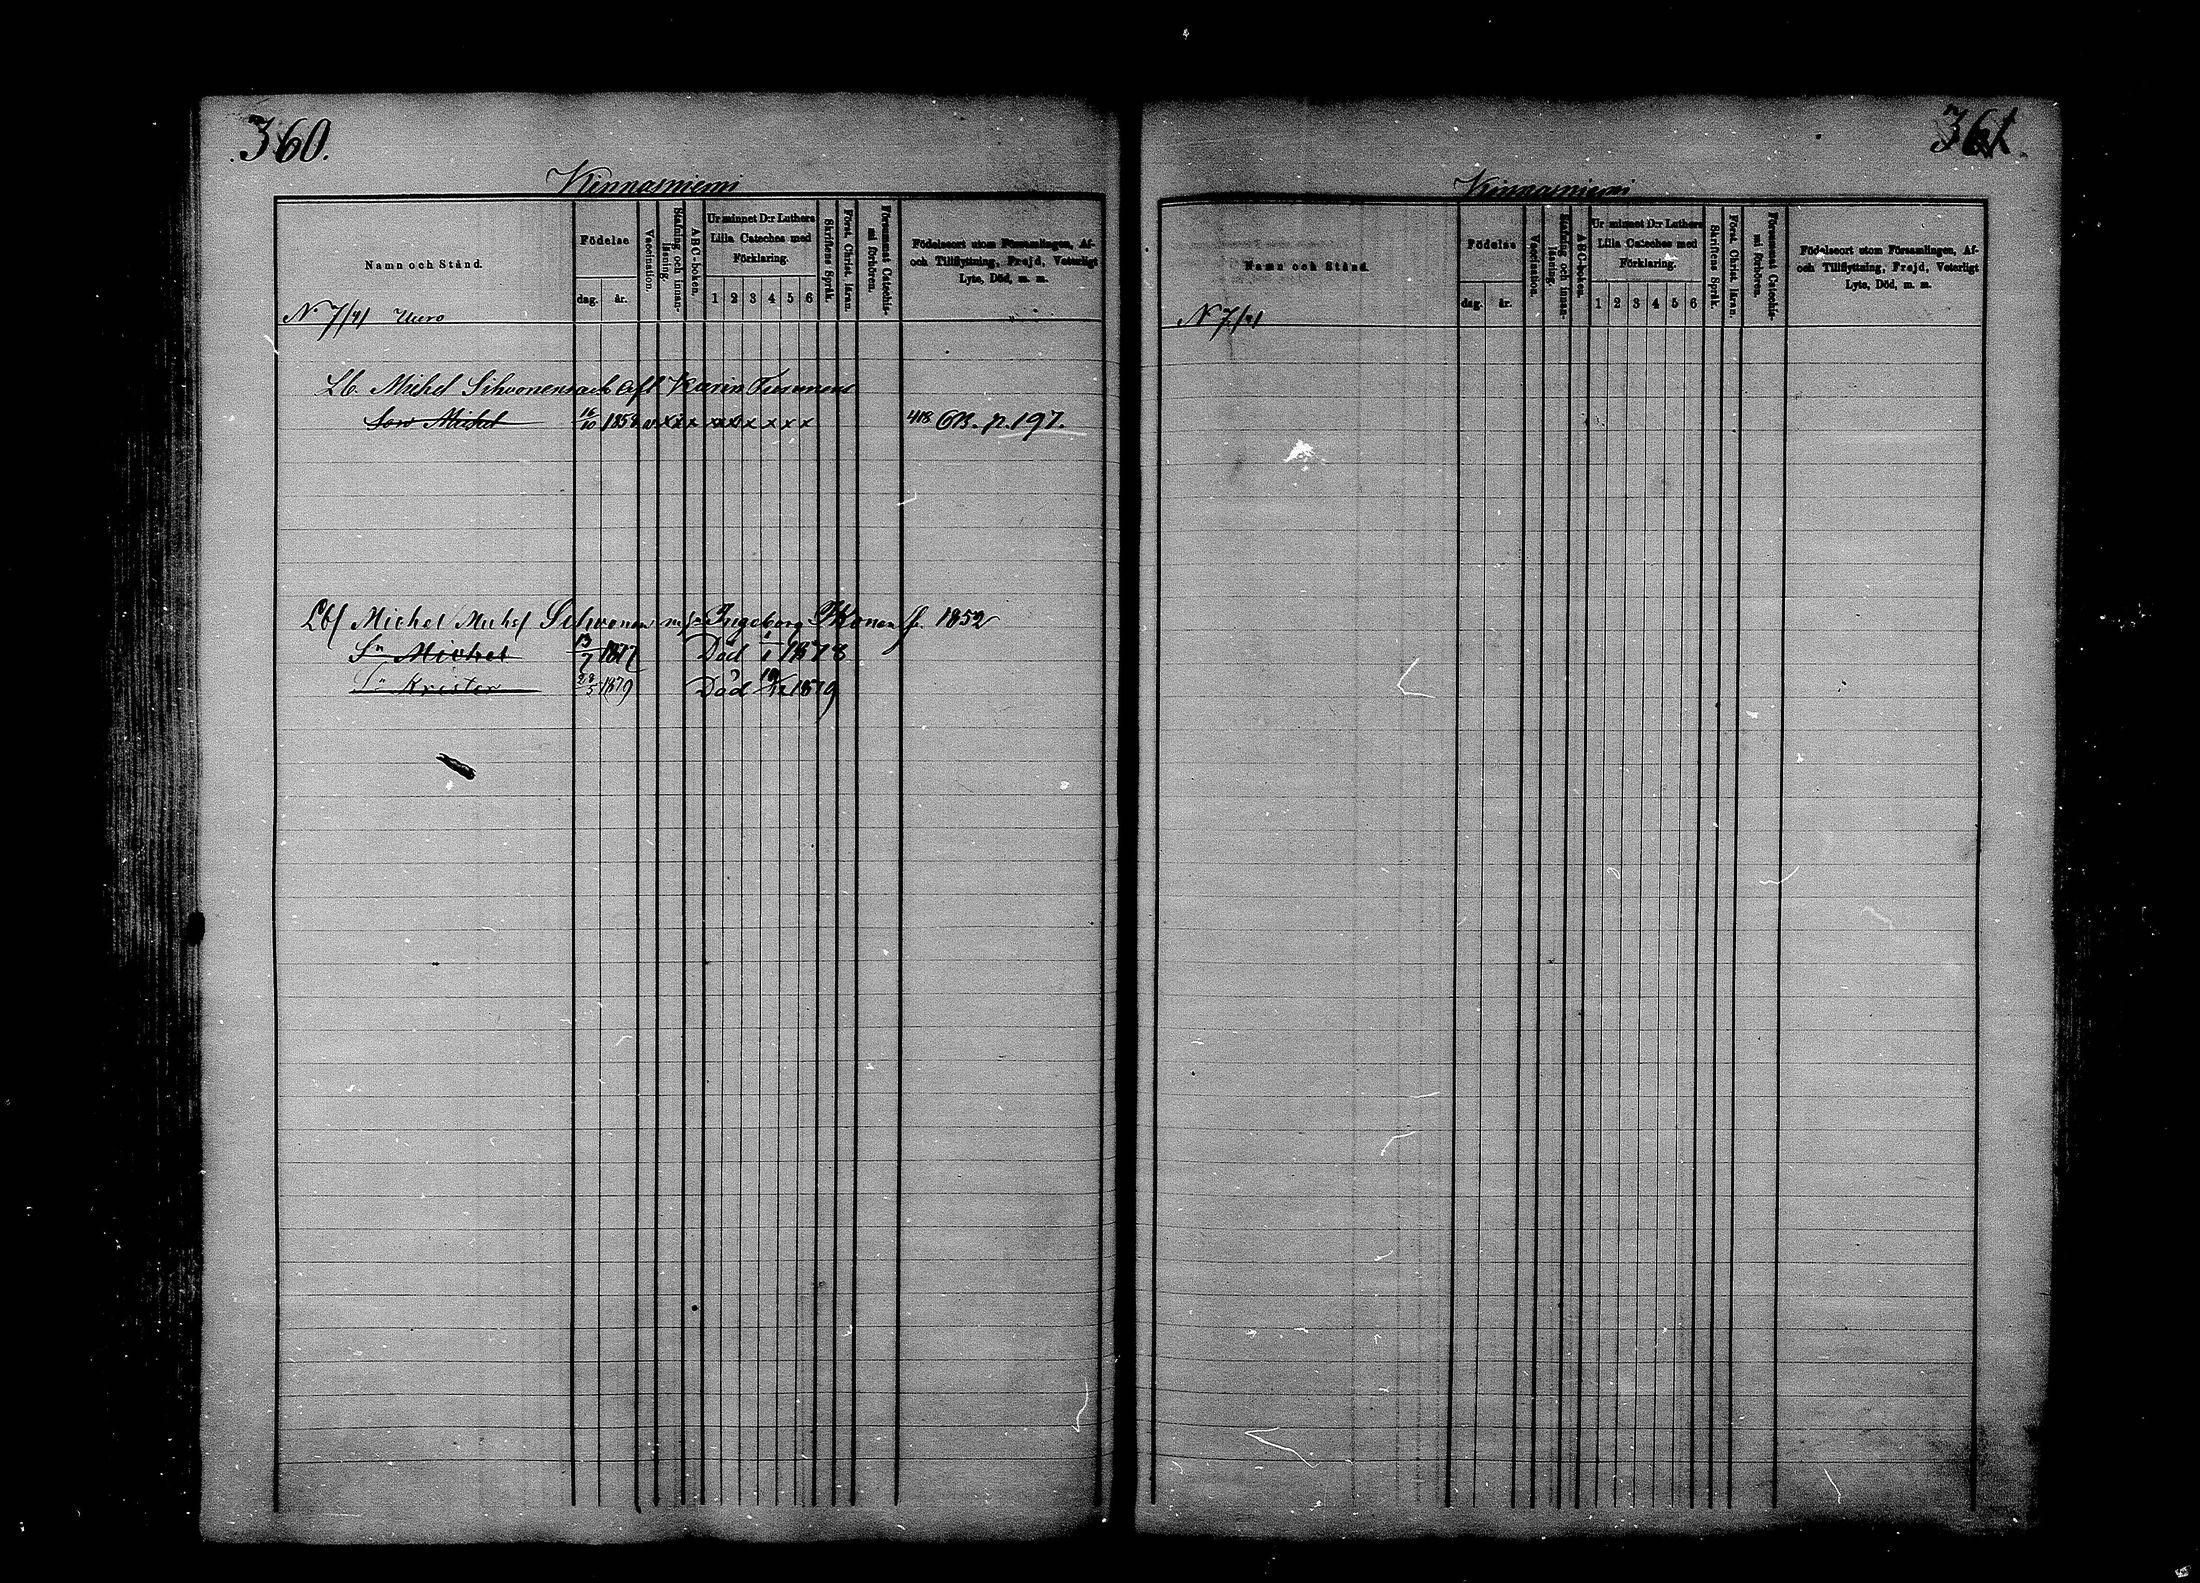 360.
Kinnasniemi
Namn och Stånd.
Födelse
dag. år.
Vaccination.
Stafning och innanläsning.
A B C-boken.
Ur minnet D:r Luthers
Lilla Cateches med
Förklaring.
1 2 3 4 5 6
Skriftens Språk.
Först. Christ. läran.
Försummat Catechismi förhören.
Födelseort utom Församlingen, Af-
och Tillflyttning, Frejd, Veterligt
Lyte, Död, m. m.
N 7/41 Uuro
Lb. Michel Sihvonens och Karin
Son Michel 16/10 185 x x x x x x 418 p. 197.
Lbf Michel Michelf Sihvonen Ingeborg Ikonen f. 1852
Sn Michel 13/7 1877 Död 1/1 1878
Sn Krister 28/5 1879 Död 1879
361.
Kinnasniemi
Namn och Stånd.
Födelse
dag. år.
Vaccination.
Stafning och innanläsning.
A B C-boken.
Ur minnet D:r Luthers
Lilla Cateches med
Förklaring.
1 2 3 4 5 6
Skriftens Språk.
Först. Christ. läran.
Försummat Catechismi förhören.
Födelseort utom Församlingen, Af-
och Tillflyttning, Frejd, Veterligt
Lyte, Död, m. m.
N 7/41